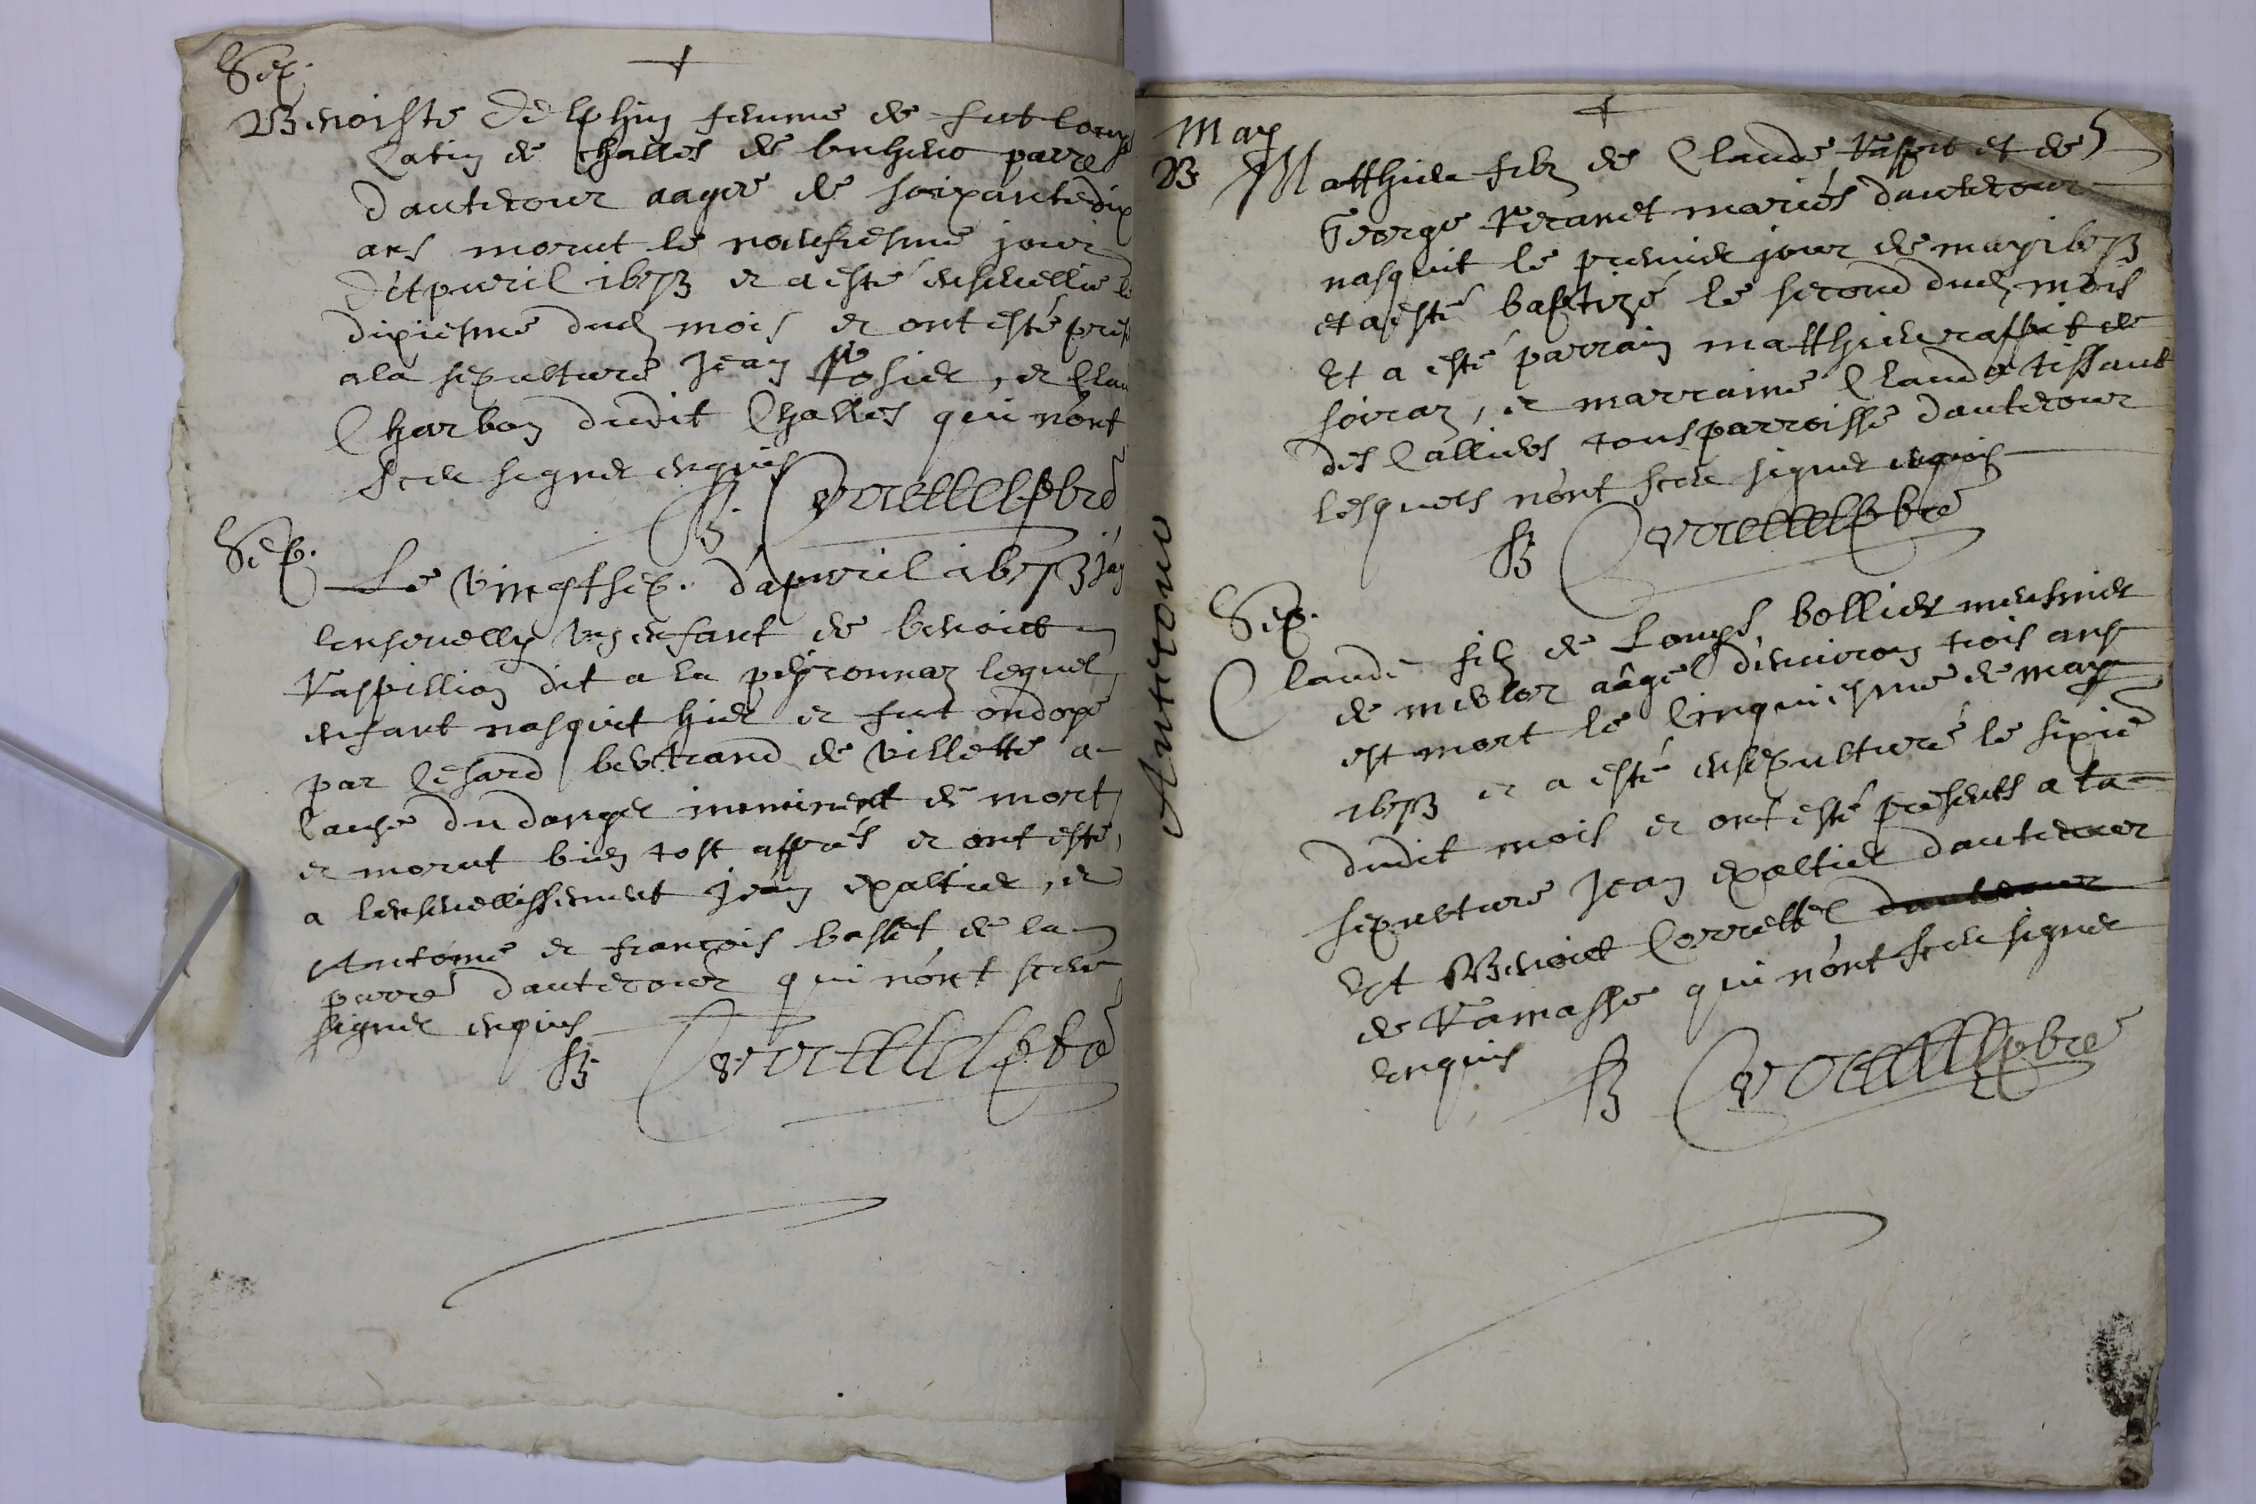 Sep.
Benoiste Delphin femme de fut Louys
Catin de Challes de buhenc parre
dauterour aagee de soixante dix
ans morut le noufiesme jour
d'Apuril 1673 et a esté ensevellie le
dixiesme dud mois et ont esté pres
a la sepulture Jean Rosier, et Clau
Charbon dudit Challes qui n'ont
sceu signer enquis
B. Correttel pbre
Sep.
Le vingtsep. d'apuril 1673 jay
ensevelly un enfant de benoict
Raspillion dit a la peyronnaz lequel
enfant nasquit hier et fut ondoyé
par Cesard bertrand de villette a
cause du danger imminent de mort
et morut bien tost appres et ont esté
a lensevellissement Jean expaltier, et
Antoine et françois basset de la
parre dauterour qui n'ont sceu
signer enquis
B Correttel pbre
Auterour
May
5
B Matthieu filz de Claude Raffet et de
George Feranet mariés dauterour
nasquit le premier jour de may 1673
et a esté baptizé le second dud mois
Et a esté parrain matthieu raffet de
soiraz, et marraine Claude tissant
des Calliers tous parroisse dauterour
lesquels n'ont sceu signer enquis
B Correttel pbre
Sep.
Claude filz de Louys bollier meusnier
de merloz aâgé denviron trois ans
est mort le Cinquiesme de may
1673 et a esté ensepulturé le sixie
dudit mois et ont esté presents a la
sepulture Jean expaltier dauterour
Et Benoict Correttel dauterour
de Ramasse qui n'ont sceu signer
enquis
B Correttel pbre